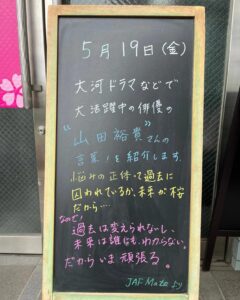 5月19日(金)
大河ドラマなどで
大活躍中の俳優の
"山田裕貴"さんの
言葉!を紹介します
悩みの正体って過去に
囚われているか、未来が
だから‥‥
なので!
過去は変えられないし、
未来は誰にもわからない。
だから いま 頑張る。
JAF Mateより